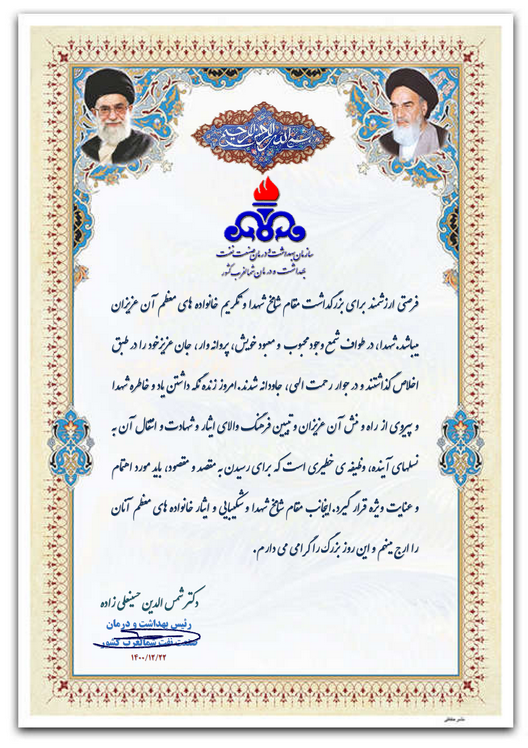 بسم الله الرحمن الرحیم
سازمان بهداشت و درمان صنعت نفت
بهداشت و درمان شمالغرب کشور
فرصتی ارزشمند برای بزرگداشت مقام شامخ شهدا و تکریم خانواده های معظم آن عزیزان
میباشد. شهدا، در طواف شمع وجود محبوب و معبود خویش، پروانه وار، جان عزیز خود را در طبق
اخلاص گذاشتند و در جوار رحمت الهی، جاودانه شدند. امروز زنده نگه داشتن یاد و خاطره شهدا
و پیروی از راه و منش آن عزیزان و تبیین فرهنگ والای ایثار و شهادت و انتقال آن به
نسلهای آینده، وظیفه ی خطیری است که برای رسیدن به مقصد و مقصود، باید مورد اهتمام
و عنایت ویژه قرار گیرد. اینجانب مقام شامخ شهدا و شکیبایی و ایثار خانواده های معظم آنان
را ارج مینهم و این روز بزرگ را گرامی می دارم.
دکتر شمس الدین حسینعلی زاده
رئیس بهداشت و درمان
صنعت نفت شمالغرب کشور
۱۴۰۰/۱۲/۲۲